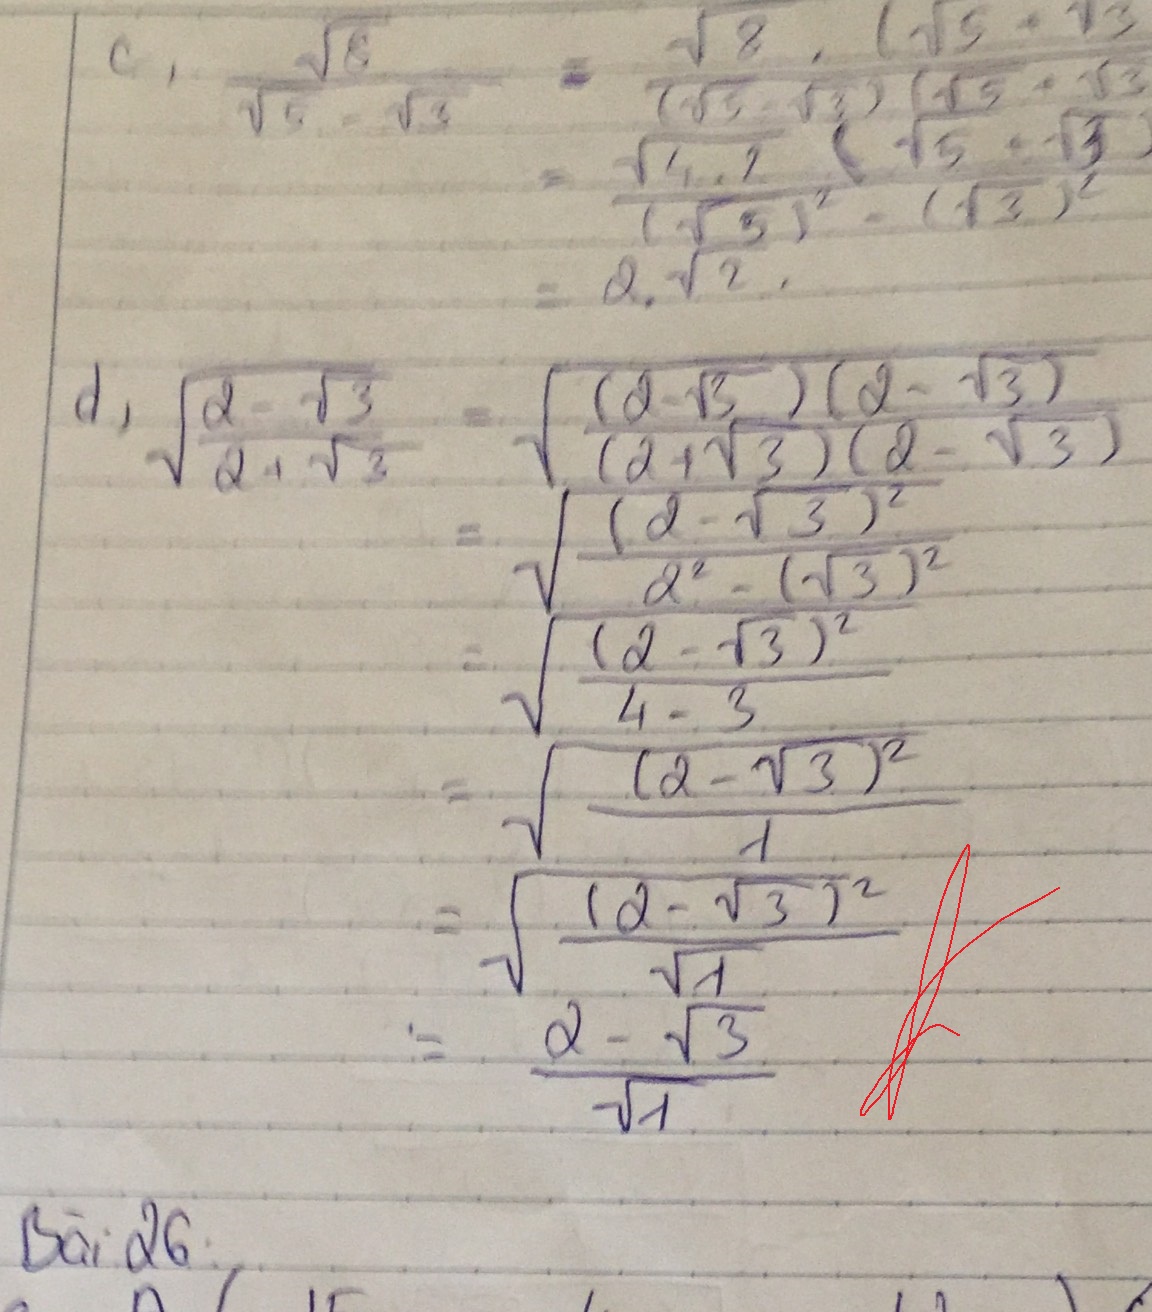 c, √8 / (√5 - √3) = √8 . (√5 + √3 / (√5 - √3) (√5 + √3
= √4.2 (√5 + √3) / (√5)² - (√3)²
= 2.√2 .
d, √((2 - √3) / (2 + √3)) = √((2-√3)(2 - √3) / (2+√3)(2 - √3))
= √((2 - √3)² / 2² - (√3)²)
= √((2 - √3)² / 4 - 3)
= √((2 - √3)² / 1)
= √((2 - √3)² / √1)
= (2 - √3) / √1
Bài 26.